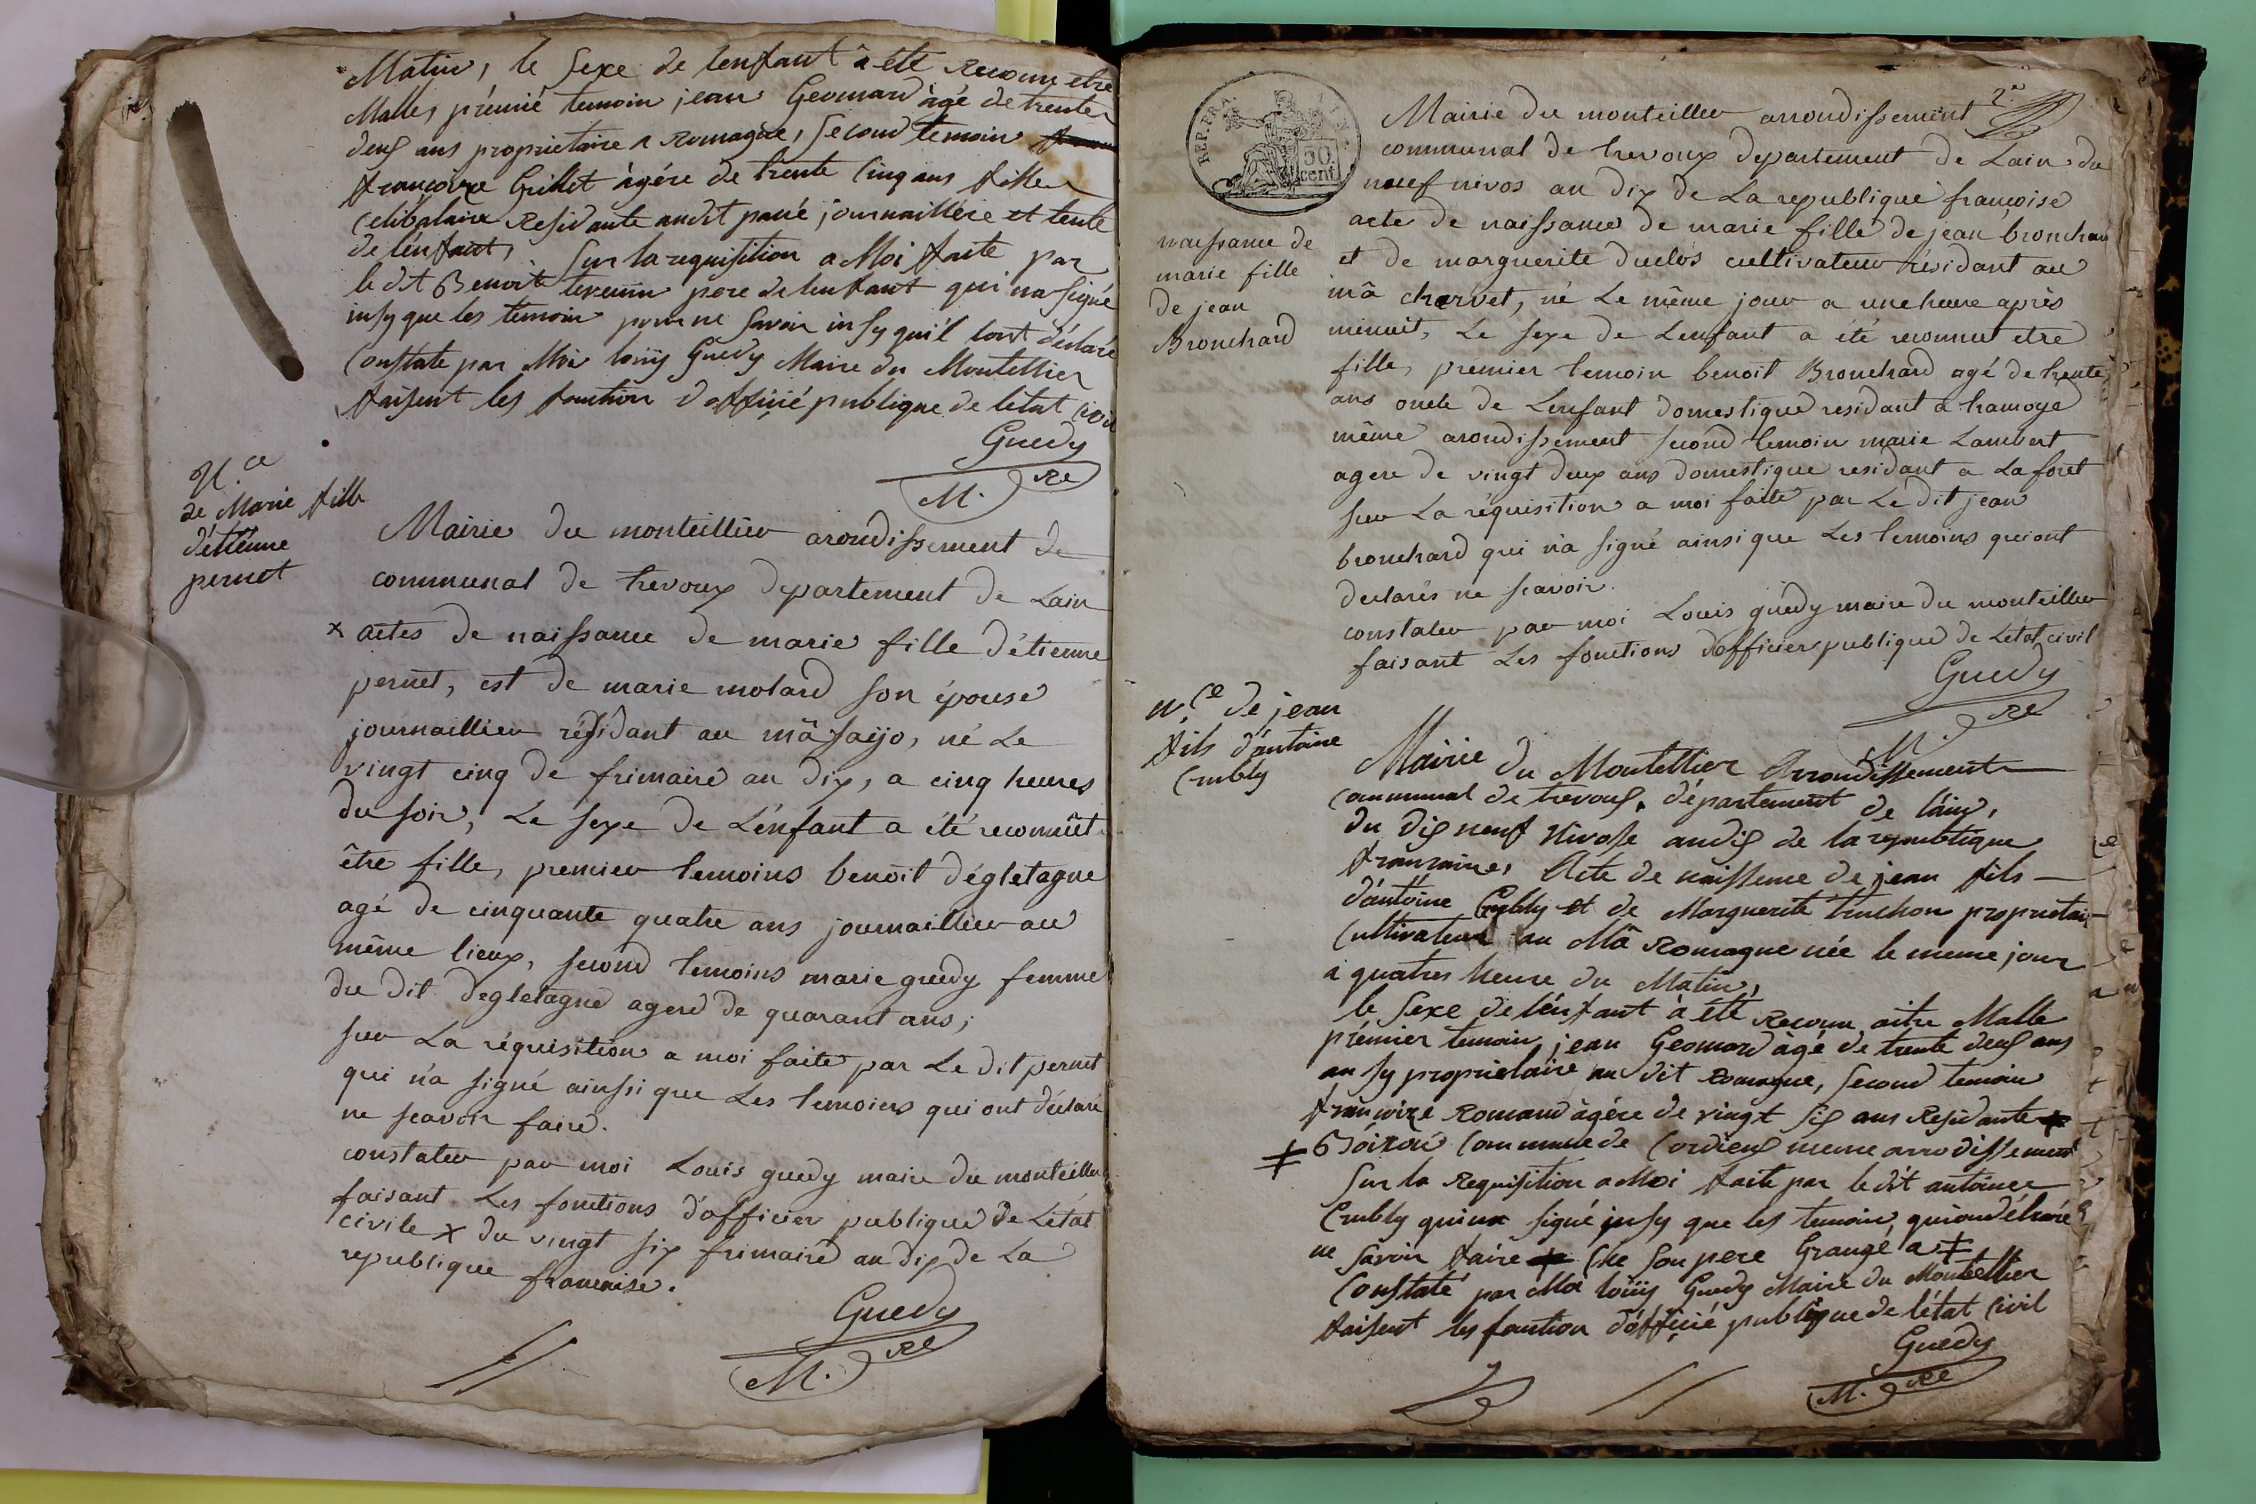 Matin, le Sexe de lenfant à été Reconu etre
Malle, prémié temoin jean Geomard àgé de trente
deux ans proprietaire a Romagne, Second temoin
françoize Grillet àgére de trente Cinq ans fille
Celibataire Residante audit journaillére et tente
de lénfant, Sur la requisition a Moi faite par
le dit Benoit pere de lenfant qui na Signé
insy que les temoin pour ne Savoir insy quil lont déclaré
Constate par Moi loüis Guedy Maire du Montellier
faisent les fonction d'officié publique de létat Civil
Guedy
M. Re
N.ce
de Marie fille
d'étienne
pernet
Mairie du monteillier arondissement de
communal de trevoux departement de Lain
x actes de naissance de marie fille d'étienne
pernet, est de marie molard son épouse
journaillier résidant au mâ saijo, né Le
vingt cinq de frimaire an dix, a cinq heures
du soir, Le sexe de L'énfant a été reconnût
être fille, premier temoins benoit dégletagne
agé de cinquante quatre ans journaillier au
même lieux, second temoins marie guedy femme
du dit degletagne agere de quarant ans;
sur La réquisition a moi faite par Le dit pernet
qui n'a signé ainssi que Les temoins qui ont déclaré
ne scavoir faire.
constater par moi Louis guedy maire du monteillier
faisant Les fonctions d'officier publique De Létat
civile x du vingt six frimaire an dix de La
republique francaise.
Guedy
M. Re
2.e
REP. FRA.
50
cent.
Mairie du monteiller arrondissement
communal de trevoux departement de Lain du
neuf nivos an dix de La republique françoise
acte de naissance de marie fille de jean bronchard
et de marguerite duclos cultivateur résidant au
mâ charvet, né Le même jour a une heure après
minuit, Le sexe de Lenfant a été reconnut etre
fille, premier temoin benoit Bronchard agé de trente
ans oncle de Lenfant domestique residant a tramoye
même arondissement second temoin marie Lambert
agere de vingt deux ans domestique residant a La foret
sur La réquisition a moi faite par Le dit jean
bronchard qui n'a signé ainsi que Les temoins qui ont
declarés ne scavoir.
constater par moi Louis guedy maire du monteiller
faisant Les fonctions d'officier publique de Létat civil
Guedy
M. Re
naissance de
marie fille
de jean
Bronchard
n.ce de jean
fils d'antoine
Crubly
Mairie du Montellier Arrondissement
Communal de trevoux, département de láin,
du dix neuf Nivose an dix de la republique
francaine, Acte de naissence de jean fils
d'antoine Crubly et de Marguerite truchon proprietai
Cultivateur au Mâ Romagne née le meme jour
a quatres heure du Matin,
le Sexe de lénfant à été Reconu aitre Malle
prémier temoin jean Geomard àgé de trente deux ans
au sy proprietaire au dit Romagne, Second témoin
françoize Romand àgére de vingt six ans Residante
‡ Commune de Cordieux meme arrodissement
Sur la Requisition a Moi faite par le dit antoine
Crubly qui na Signé insy que les temoin, qui on déclaré
ne Savoir faire Che Son pere Grangé a ‡
Constaté par Moi loüis Guedy Maire du Montellier
faisent les fonction d'officié publique de létat Civil
Guedy
M. Re